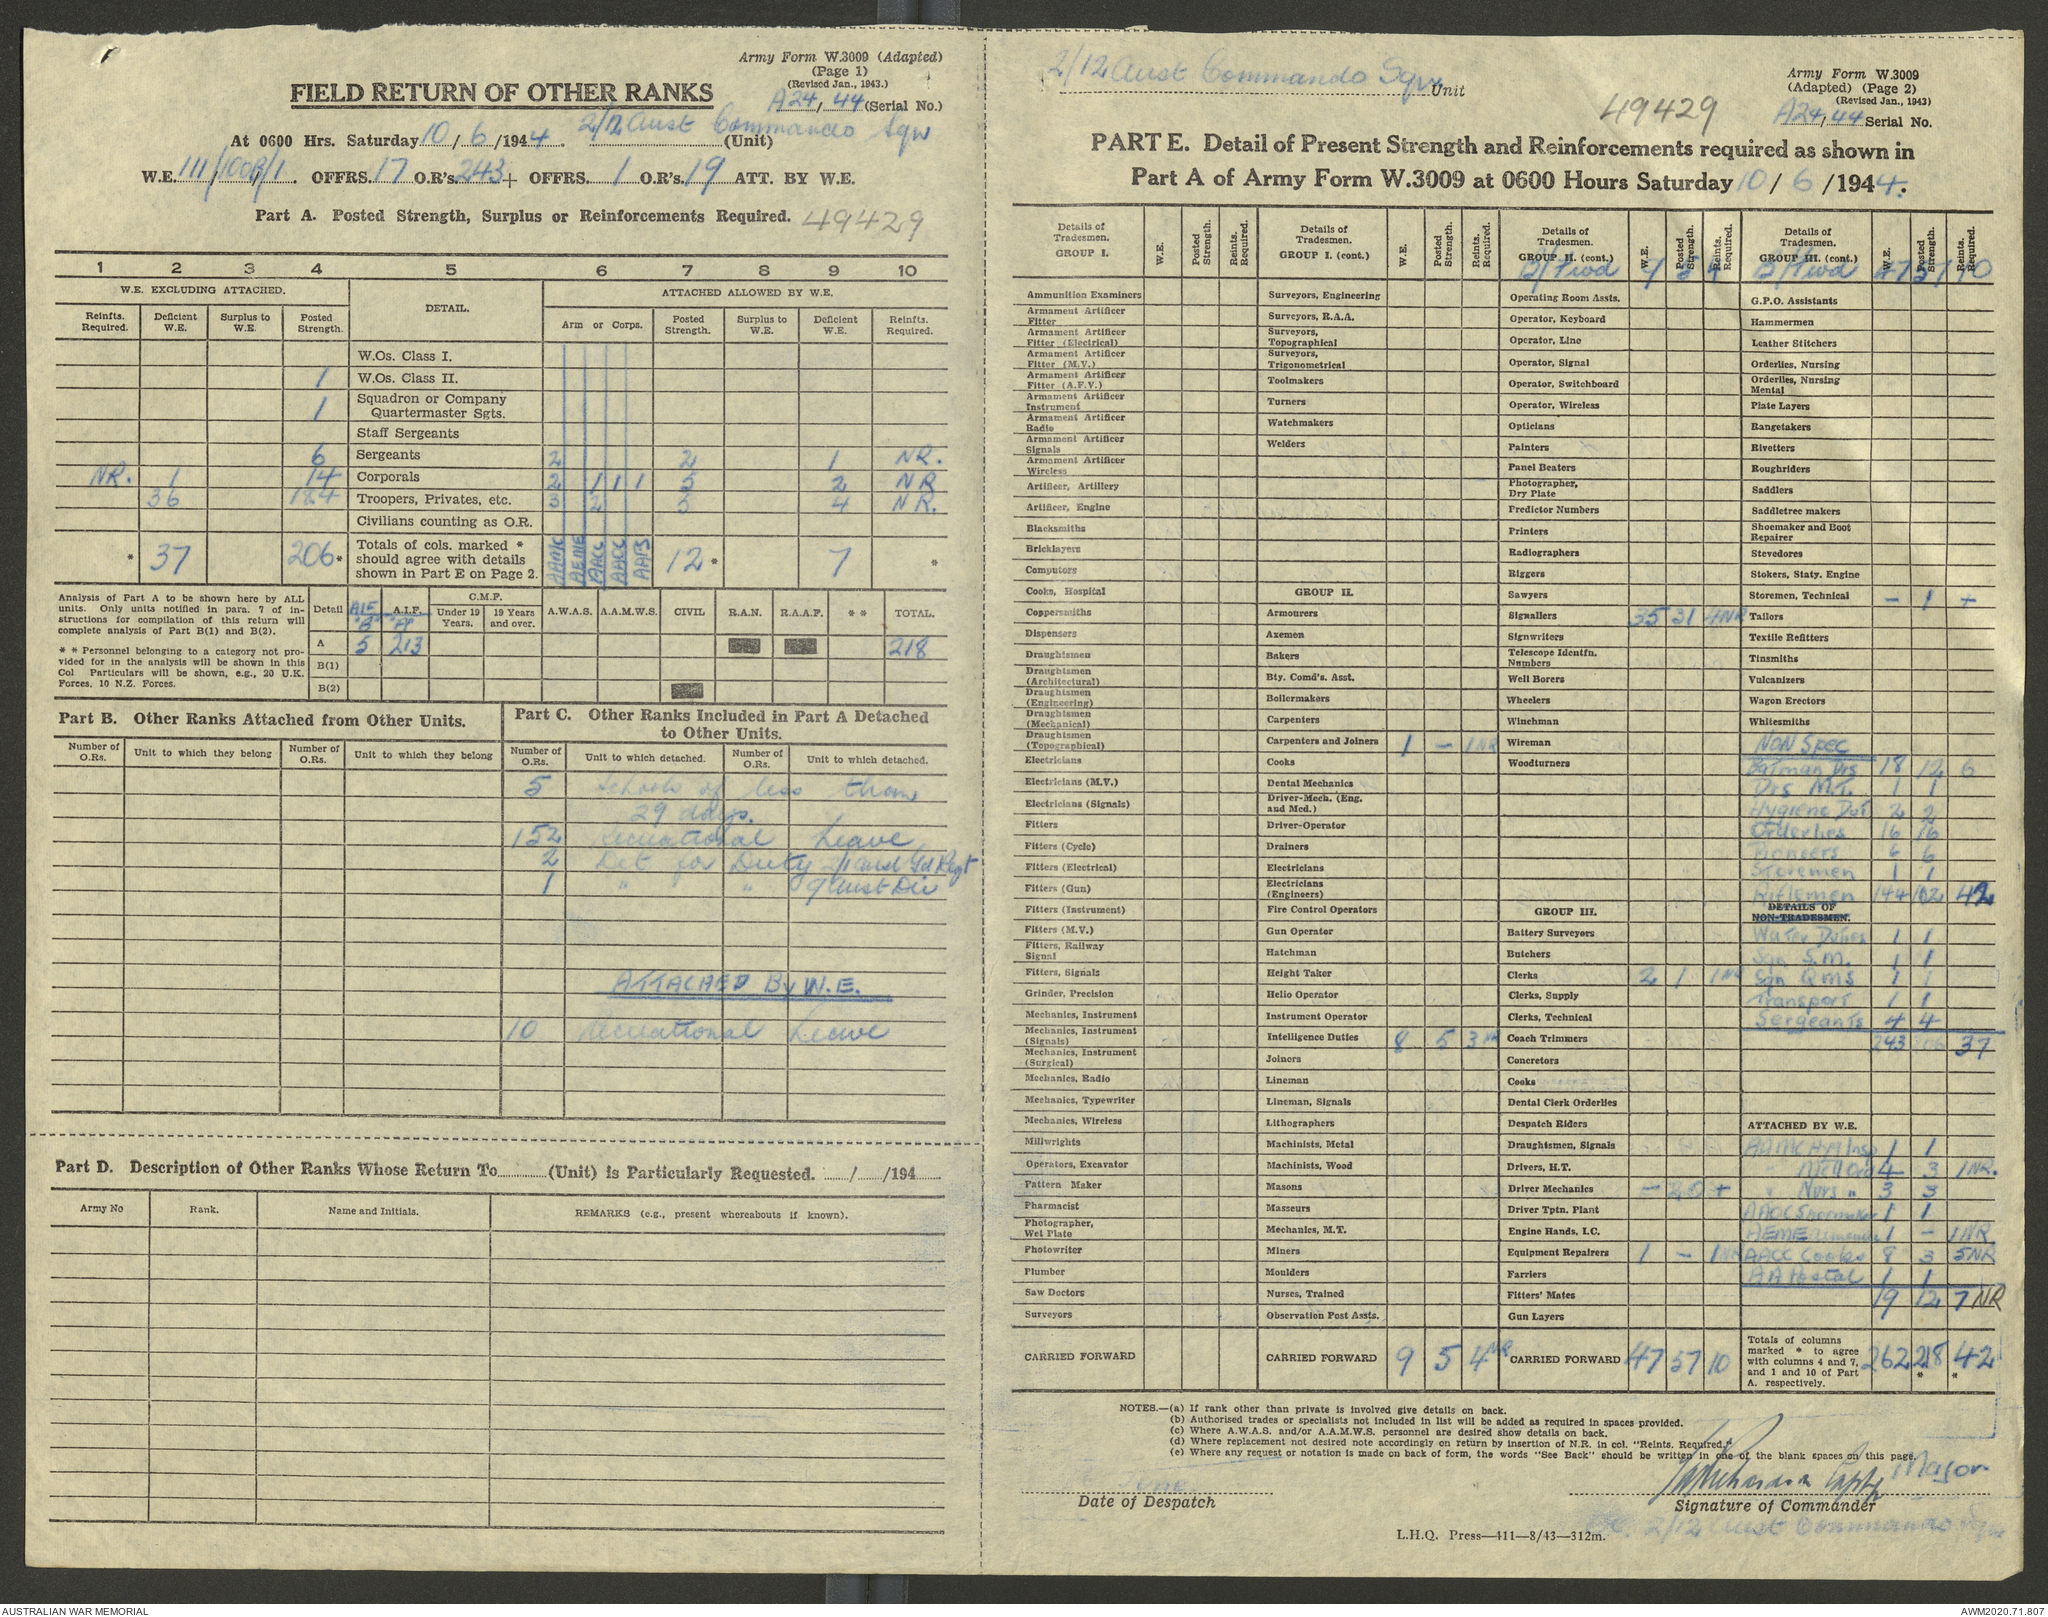 Army Form W.3009 (Adapted)
(Page 1)
(Revised Jan., 1943.)
FIELD RETURN OF OTHER RANKS
A24/44 (Serial No.)
At 0600 Hrs. Saturday 10/6/1944. 2/12 Aust Commando Sqn (Unit)
W.E. 111/100B/1. OFFRS. 17 O.R's. 243 + OFFRS. 1 O.R's. 19 ATT. BY W.E.
Part A. Posted Strength, Surplus or Reinforcements Required. 49429
1 2 3 4 5 6 7 8 9 10
W.E. EXCLUDING ATTACHED. DETAIL. ATTACHED ALLOWED BY W.E.
Reinfts. Required. Deficient W.E. Surplus to W.E. Posted Strength. Arm or Corps. Posted Strength. Surplus to W.E. Deficient W.E. Reinfts. Required.
W.Os. Class I.
1 W.Os. Class II.
1 Squadron or Company Quartermaster Sgts.
Staff Sergeants
6 Sergeants 2 2 1 NR.
NR. 1 14 Corporals 2 1 1 1 5 2 NR
36 184 Troopers, Privates, etc. 3 2 5 4 NR.
Civilians counting as O.R.
* 37 206* Totals of cols. marked * should agree with details shown in Part E on Page 2. AAMC AEME AAOC AACC AAPS 12* 7 *
Analysis of Part A to be shown here by ALL units. Only units notified in para. 7 of instructions for compilation of this return will complete analysis of Part B(1) and B(2).
* * Personnel belonging to a category not provided for in the analysis will be shown in this Col Particulars will be shown, e.g., 20 U.K. Forces, 10 N.Z. Forces.
Detail AIF "B" A.I.F. "A" C.M.F. Under 19 Years. 19 Years and over. A.W.A.S. A.A.M.W.S. CIVIL R.A.N. R.A.A.F. * * TOTAL.
A 5 213 218
B(1)
B(2)
Part B. Other Ranks Attached from Other Units.
Number of O.Rs. Unit to which they belong Number of O.Rs. Unit to which they belong
Part C. Other Ranks Included in Part A Detached to Other Units.
Number of O.Rs. Unit to which detached. Number of O.Rs. Unit to which detached.
5 Schools of less than
29 days.
152 Recreational Leave
2 Det for Duty 2/1 Aust Gd Regt
1 " " 9 Aust Div
ATTACHED By W.E.
10 Recreational Leave
Part D. Description of Other Ranks Whose Return To (Unit) is Particularly Requested. / /194
Army No Rank. Name and Initials. REMARKS (e.g., present whereabouts if known).
2/12 Aust Commando Sqn Unit
Army Form W.3009
(Adapted) (Page 2)
(Revised Jan., 1943)
49429
A24/44 Serial No.
PART E. Detail of Present Strength and Reinforcements required as shown in
Part A of Army Form W.3009 at 0600 Hours Saturday 10/6/1944.
Details of Tradesmen. GROUP I. W.E. Posted Strength. Reints. Required.
Ammunition Examiners
Armament Artificer Fitter
Armament Artificer Fitter (Electrical)
Armament Artificer Fitter (M.V.)
Armament Artificer Fitter (A.F.V.)
Armament Artificer Instrument
Armament Artificer Radio
Armament Artificer Signals
Armament Artificer Wireless
Artificer, Artillery
Artificer, Engine
Blacksmiths
Bricklayers
Computors
Cooks, Hospital
Coppersmiths
Dispensers
Draughtsmen
Draughtsmen (Architectural)
Draughtsmen (Engineering)
Draughtsmen (Mechanical)
Draughtsmen (Topographical)
Electricians
Electricians (M.V.)
Electricians (Signals)
Fitters
Fitters (Cycle)
Fitters (Electrical)
Fitters (Gun)
Fitters (Instrument)
Fitters (M.V.)
Fitters, Railway Signal
Fitters, Signals
Grinder, Precision
Mechanics, Instrument
Mechanics, Instrument (Signals)
Mechanics, Instrument (Surgical)
Mechanics, Radio
Mechanics, Typewriter
Mechanics, Wireless
Millwrights
Operators, Excavator
Pattern Maker
Pharmacist
Photographer, Wet Plate
Photowriter
Plumber
Saw Doctors
Surveyors
CARRIED FORWARD
Details of Tradesmen. GROUP I. (cont.) W.E. Posted Strength. Reints. Required.
Surveyors, Engineering
Surveyors, R.A.A.
Surveyors, Topographical
Surveyors, Trigonometrical
Toolmakers
Turners
Watchmakers
Welders
GROUP II.
Armourers
Axemen
Bakers
Bty. Comd's. Asst.
Boilermakers
Carpenters
Carpenters and Joiners 1 - 1 NR
Cooks
Dental Mechanics
Driver-Mech. (Eng. and Med.)
Driver-Operator
Drainers
Electricians
Electricians (Engineers)
Fire Control Operators
Gun Operator
Hatchman
Height Taker
Helio Operator
Instrument Operator
Intelligence Duties 8 5 3 NR
Joiners
Lineman
Lineman, Signals
Lithographers
Machinists, Metal
Machinists, Wood
Masons
Masseurs
Mechanics, M.T.
Miners
Moulders
Nurses, Trained
Observation Post Assts.
CARRIED FORWARD 9 5 4 NR
Details of Tradesmen. GROUP II. (cont.) W.E. Posted Strength. Reints. Required.
B/Fwd 9 5 4
Operating Room Assts.
Operator, Keyboard
Operator, Line
Operator, Signal
Operator, Switchboard
Operator, Wireless
Opticians
Painters
Panel Beaters
Photographer, Dry Plate
Predictor Numbers
Printers
Radiographers
Riggers
Sawyers
Signallers 35 31 4NR
Signwriters
Telescope Identfn. Numbers
Well Borers
Wheelers
Winchman
Wireman
Woodturners
GROUP III.
Battery Surveyors
Butchers
Clerks 2 1 1NR
Clerks, Supply
Clerks, Technical
Coach Trimmers
Concretors
Cooks
Dental Clerk Orderlies
Despatch Riders
Draughtsmen, Signals
Drivers, H.T.
Driver Mechanics - 20 +
Driver Tptn. Plant
Engine Hands, I.C.
Equipment Repairers 1 - 1NR
Farriers
Fitters' Mates
Gun Layers
CARRIED FORWARD 47 57 10
Details of Tradesmen. GROUP III. (cont.) W.E. Posted Strength. Reints. Required.
B/Fwd 47 57 10
G.P.O. Assistants
Hammermen
Leather Stitchers
Orderlies, Nursing
Orderlies, Nursing Mental
Plate Layers
Rangetakers
Rivetters
Roughriders
Saddlers
Saddletree makers
Shoemaker and Boot Repairer
Stevedores
Stokers, Staty. Engine
Storemen, Technical - 1 +
Tailors
Textile Refitters
Tinsmiths
Vulcanizers
Wagon Erectors
Whitesmiths
NON SPEC
Batman Drs 18 12 6
Drs M.T. 1 1
Hygiene Dut 2 2
Orderlies 16 16
Pioneers 6 6
Storemen 1 1
Riflemen 144 102 42
DETAILS OF NON-TRADESMEN.
Water Duties 1 1
Sqn S.M. 1 1
Sqn QMS 1 1
Transport 1 1
Sergeants 4 4
243 206 37
ATTACHED BY W.E.
AAMC 1 1
4 3 1NR.
" Nurs " 3 3
AAOC Shoemaker 1 1
AEME 1 - 1NR
AACC Cooks 8 3 5NR
AA Postal 1 1
19 12 7 NR
Totals of columns marked * to agree with columns 4 and 7, and 1 and 10 of Part A. respectively. 262 218 * 42 *
NOTES.—(a) If rank other than private is involved give details on back.
(b) Authorised trades or specialists not included in list will be added as required in spaces provided.
(c) Where A.W.A.S. and/or A.A.M.W.S. personnel are desired show details on back.
(d) Where replacement not desired note accordingly on return by insertion of N.R. in col. "Reints. Required."
(e) Where any request or notation is made on back of form, the words "See Back" should be written in one of the blank spaces on this page.
June
Date of Despatch
Major
Signature of Commander
2/12 Aust Commando Sqn
L.H.Q. Press—411—8/43—312m.
AUSTRALIAN WAR MEMORIAL
AWM2020.71.807